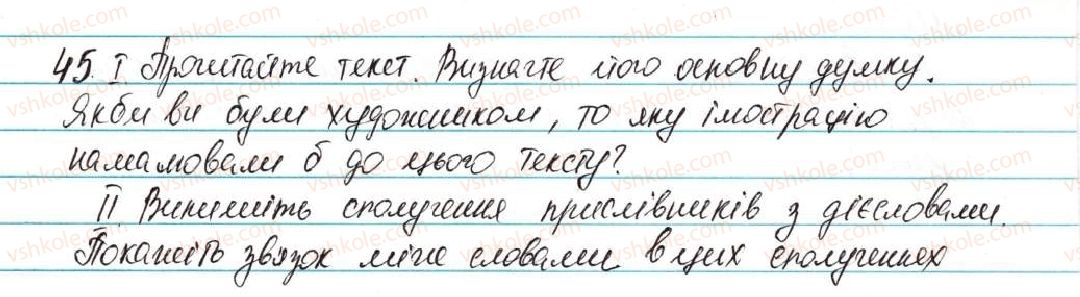 45. I Прочитайте текст. Визначте його основну думку.
Якби ви були художником, то яку ілюстрацію
намалювали б до цього тексту?
II Випишіть сполучення прислівників з дієсловами.
Покажіть звязок між словами в цих сполученнях